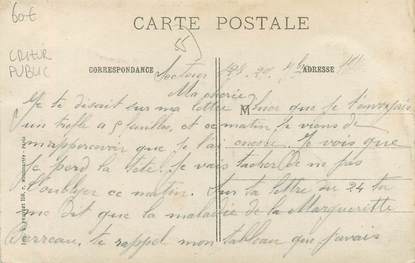 60€
CRIEUR
PUBLIC
55
CARTE POSTALE
CORRESPONDANCE
ADRESSE
Ma cherie
Je te disait sur ma lettre que je t'envoyais
un trefle a 5 feuilles, et ce matin je viens de
m'appercevoir que je l'ai encore. Je vois que
je perd la tete. Je vais tacher de ne pas
l'oublyer ce matin. Sur la lettre du 24 tu
me dit que la maladie de la Marguerette
te rappel mon tableau que j'avais